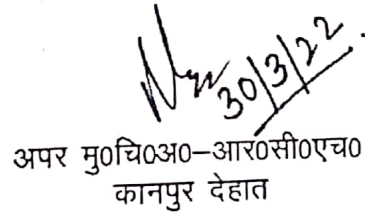 30/3/22
अपर मु0चि0अ0–आर0सी0एच0
कानपुर देहात